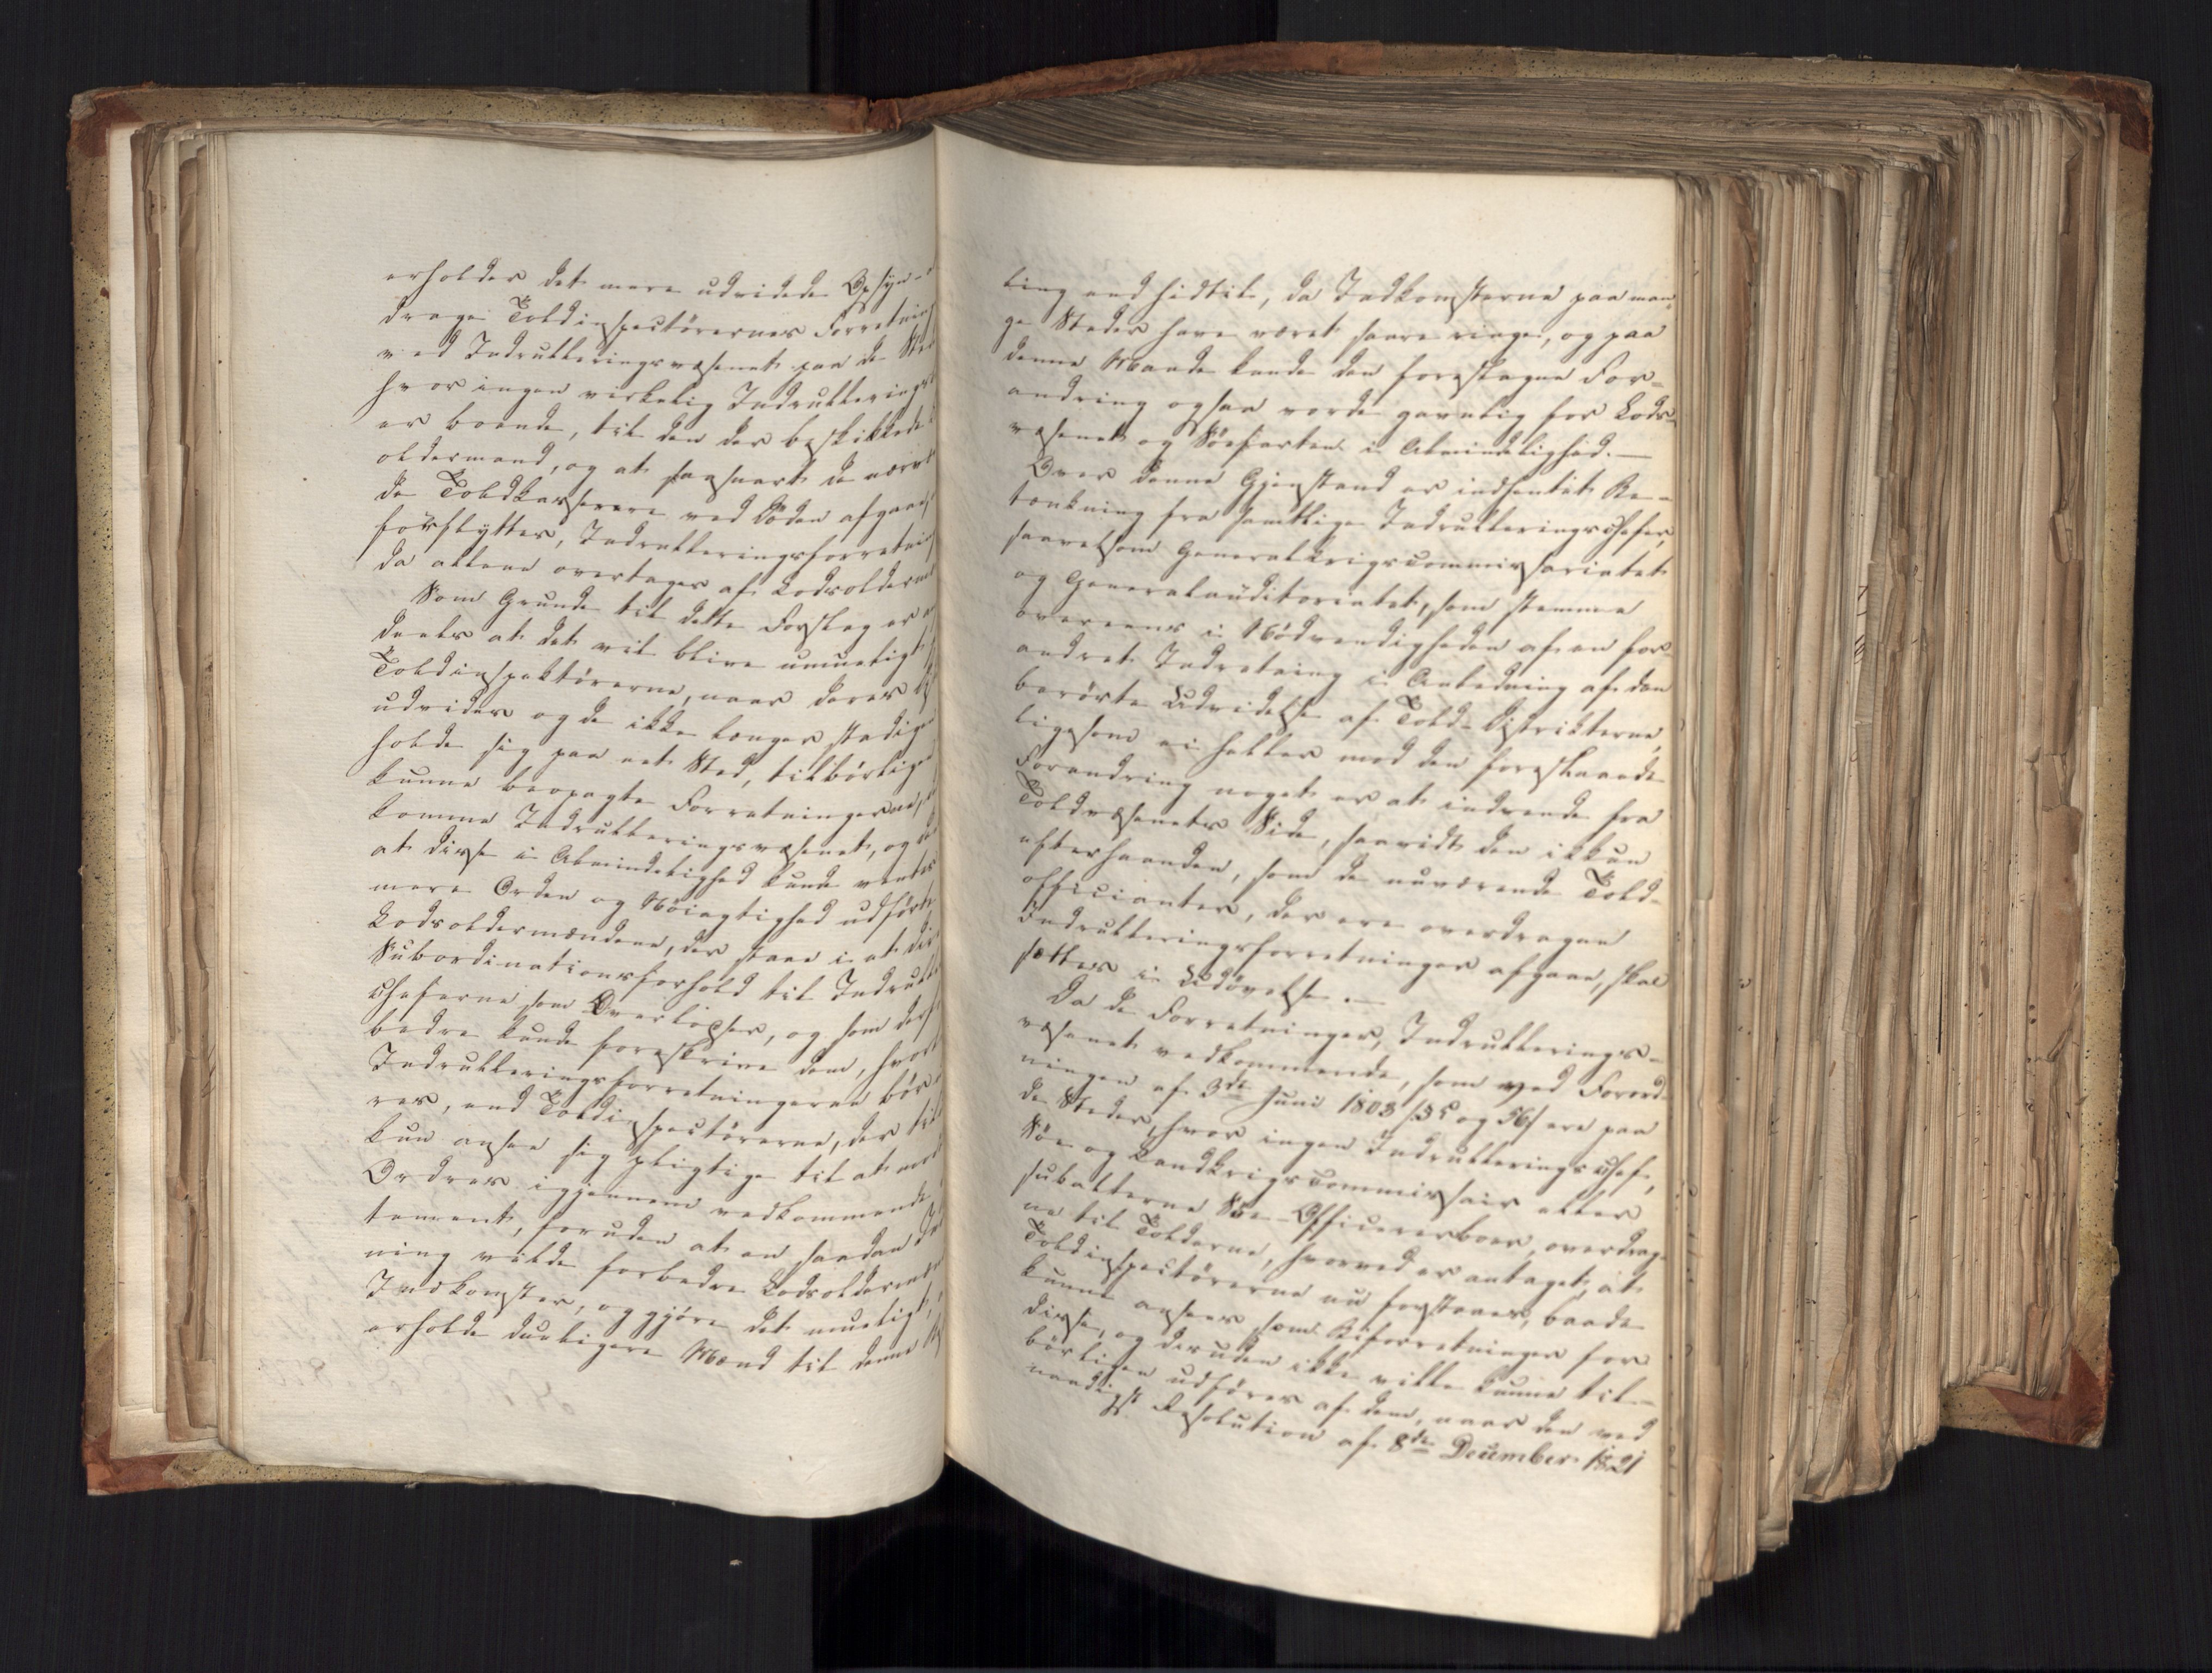 erholder det mere udvidede Opsyn-
drage Toldinspecteurernes Forretning
ved Indrulleringsvæsenet paa de Sted
hvor ingen virkelig Indrullerings
er boende, til den der beskikkede
oldermand, og at saasnart de nære
de Toldkasserere ved Døden afgaae,
forflyttes, Indrulleringsforretning
da allene overtages af Lodsolderm
Som Grunde til dette Forslag er
deels at det vil blive umueligt
Toldinspektørerne, naar deres
udvides og de ikke længer stadigen
holde sig paa eet Sted, tilbørligen
kunne besørgte Forretningerne,
komme Indrulleringsvæsenet, og
at disse i Almindelighed kunde ventes
mere Orden og Nøiagtighed udførte
Lodsoldermændene, der staae i et
Subordinationsforhold til Indrull
cheferne som Overlodser, og som
bedre kunde foreskrive dem, hvor
Indrulleringsforretningerne bør
res, end Toldinspecteurerne, der
kun ansee sig pligtige til at mod
Ordrer igjennem vedkommende
tement, foruden at en saadan
ning vilde forbedre Lodsoldermæn
Indkomster, og gjøre det mueligt,
erholde dueligere Mænd til denne
ling end hidtil, da Indkomsterne paa man¬
ge Steder have været saare ringe, og paa
denne Maade kunde den foreslagne For¬
andring ogsaa vorde gavnlig for Lods¬
væsenet og Søefarten i Almindelighed. —
Over denne Gjenstand er indhentet Be¬
tænkning fra samtlige Indrulleringschefer,
saavelsom Generalkrigscommissariatet
og Generalauditoriatet, som stemme
overeens i Nødvendigheden af en for¬
andret Indretning i Anledning af den
berørte Udvidelse af Told-Distrikterne,
ligesom ei heller mod den foreslaaede
Forandring noget er at indvende fra
Toldvæsenets Side, saavidt den ikkun
efterhaanden, som de nuværende Told-
officianter, der ere overdragne
Indrulleringsforretninger afgaae, skal
sættes i Udøvelse. —
Da de Forretninger, Indrullerings-
væsenet vedkommende, som ved Forord-
ningen af 3de Juni 1803 § 35 og 56 ere paa
de Steder, hvor ingen Indrulleringschef,
Søe og Landkrigscommissair eller
subalterne Søe-Officerer boer, overdrag-
ne til Tolderne, hvorved er antaget, at
Toldinspecteurerne nu forstaaes, baade
kunne ansees som Biforretninger for
disse, og desuden ikke ville kunne til-
børligen udføres af dem, naar den ved
naadigst Resolution af 8de December 1821